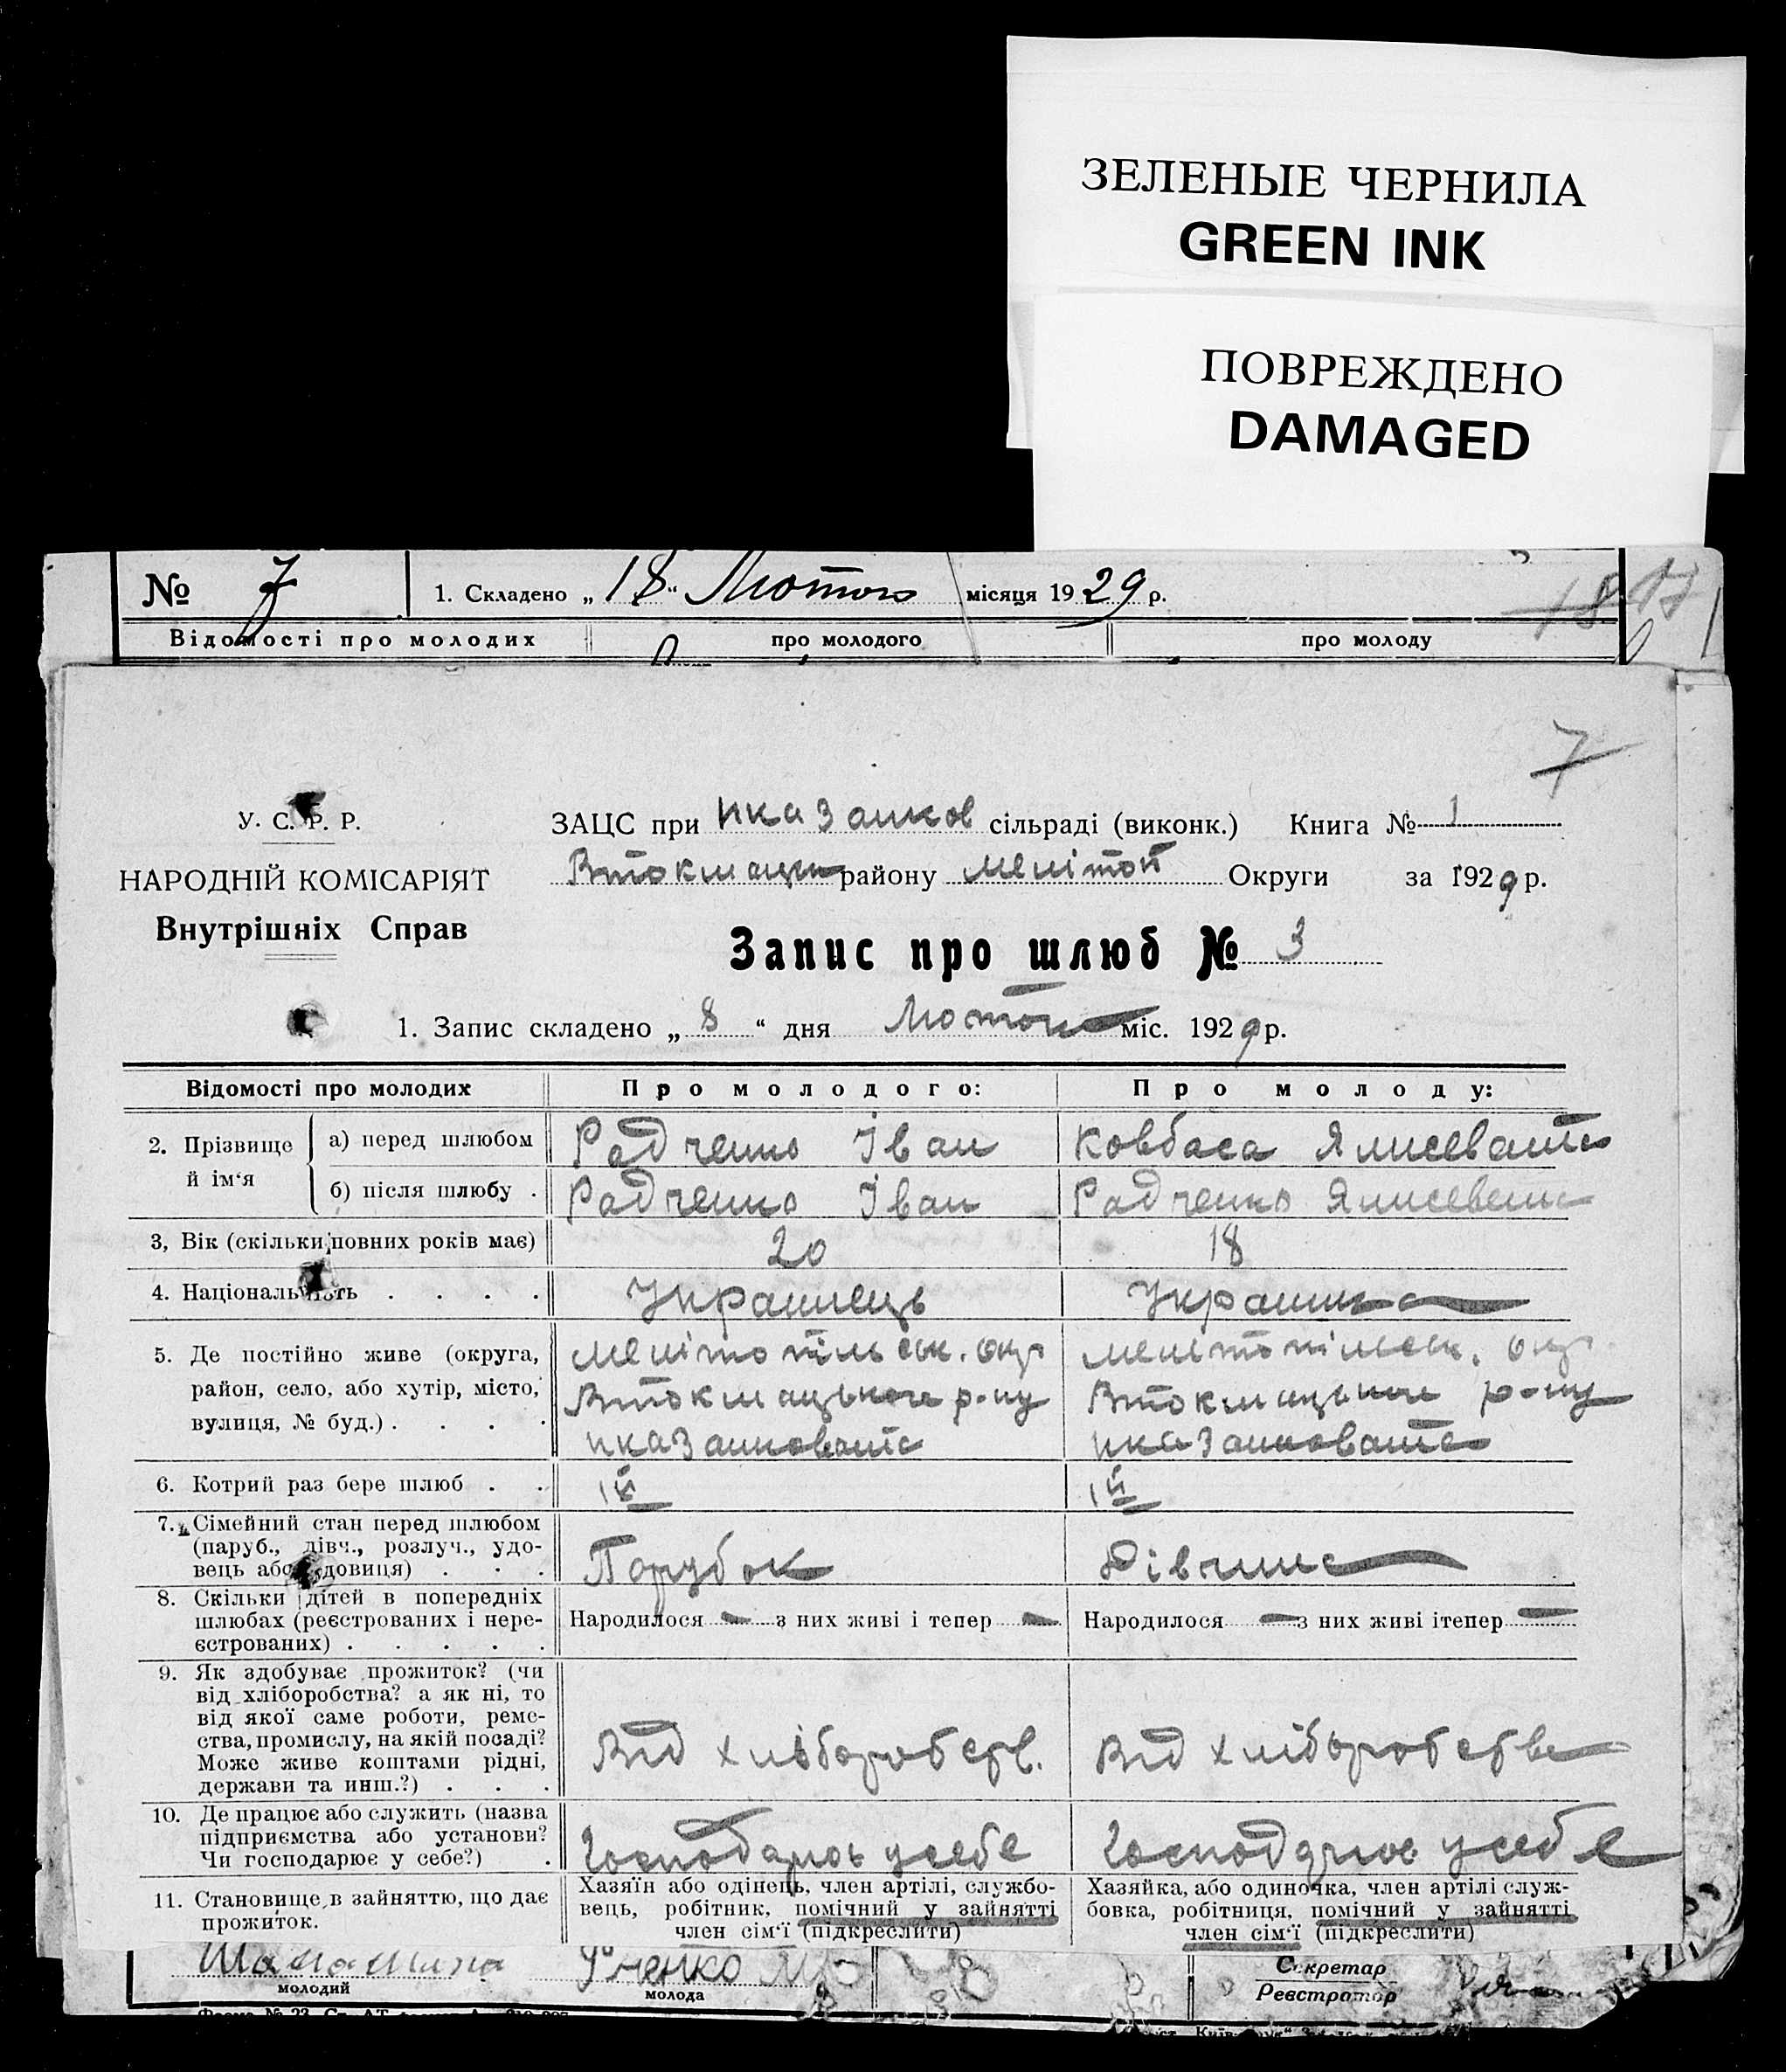 ЗЕЛЕНЫЕ ЧЕРНИЛА
GREEN INK
ПОВРЕЖДЕНО
DAMAGED
№ 7 1. Складено „18“ Лютого місяця 1929 р.
Відомості про молодих про молодого про молоду
7
У. С. Р. Р.
НАРОДНІЙ КОМІСАРІЯТ
Внутрішніх Справ
ЗАЦС при сільраді (виконк.) Книга № 1
Втокмацьк району Мелітоп Округи за 1929 р.
Запис про шлюб № 3
1. Запис складено „8“ дня Лютого міс. 1929 р.
Відомості про молодих Про молодого: Про молоду:
2. Прізвище й ім‘я
а) перед шлюбом Радченко Іван Ковбаса
б) після шлюбу . Радченко Іван Радченко
3, Вік (скільки повних років має) 20 18
4. Національність . . . . Українець Українка
5. Де постійно живе (округа, Мелітопільськ. окр Мелітопільськ. окр.
район, село, або хутір, місто, Втокмацького р-ну Втокмацького р-ну
вулиця, № буд.) . . . .
6. Котрий раз бере шлюб . . 1й 1й
7. Сімейний стан перед шлюбом
(паруб., дівч., розлуч., удо-
вець або вдовиця) . . . Парубок Дівчина
8. Скільки дітей в попередніх
шлюбах (реєстрованих і нере- Народилося — з них живі і тепер — Народилося — з них живі ітепер —
єстрованих) . . . . .
9. Як здобуває прожиток? (чи
від хліборобства? а як ні, то
від якої саме роботи, реме-
ства, промислу, на якій посаді?
Може живе коштами рідні, Від хліборобств. Від хліборобства
держави та инш.?) . . .
10. Де працює або служить (назва
підприємства або установи?
Чи господарює у себе?) . Господарює у себе Господарює у себе
11. Становище в зайняттю, що дає
прожиток.
Хазяїн або одінець, член артілі, службо-
вець, робітник, помічний у зайнятті
член сім‘ї (підкреслити)
Хазяйка, або одиночка, член артілі служ-
бовка, робітниця, помічний у зайнятті
член сім‘ї (підкреслити)
молодий молода
Секретар
Реєстратор